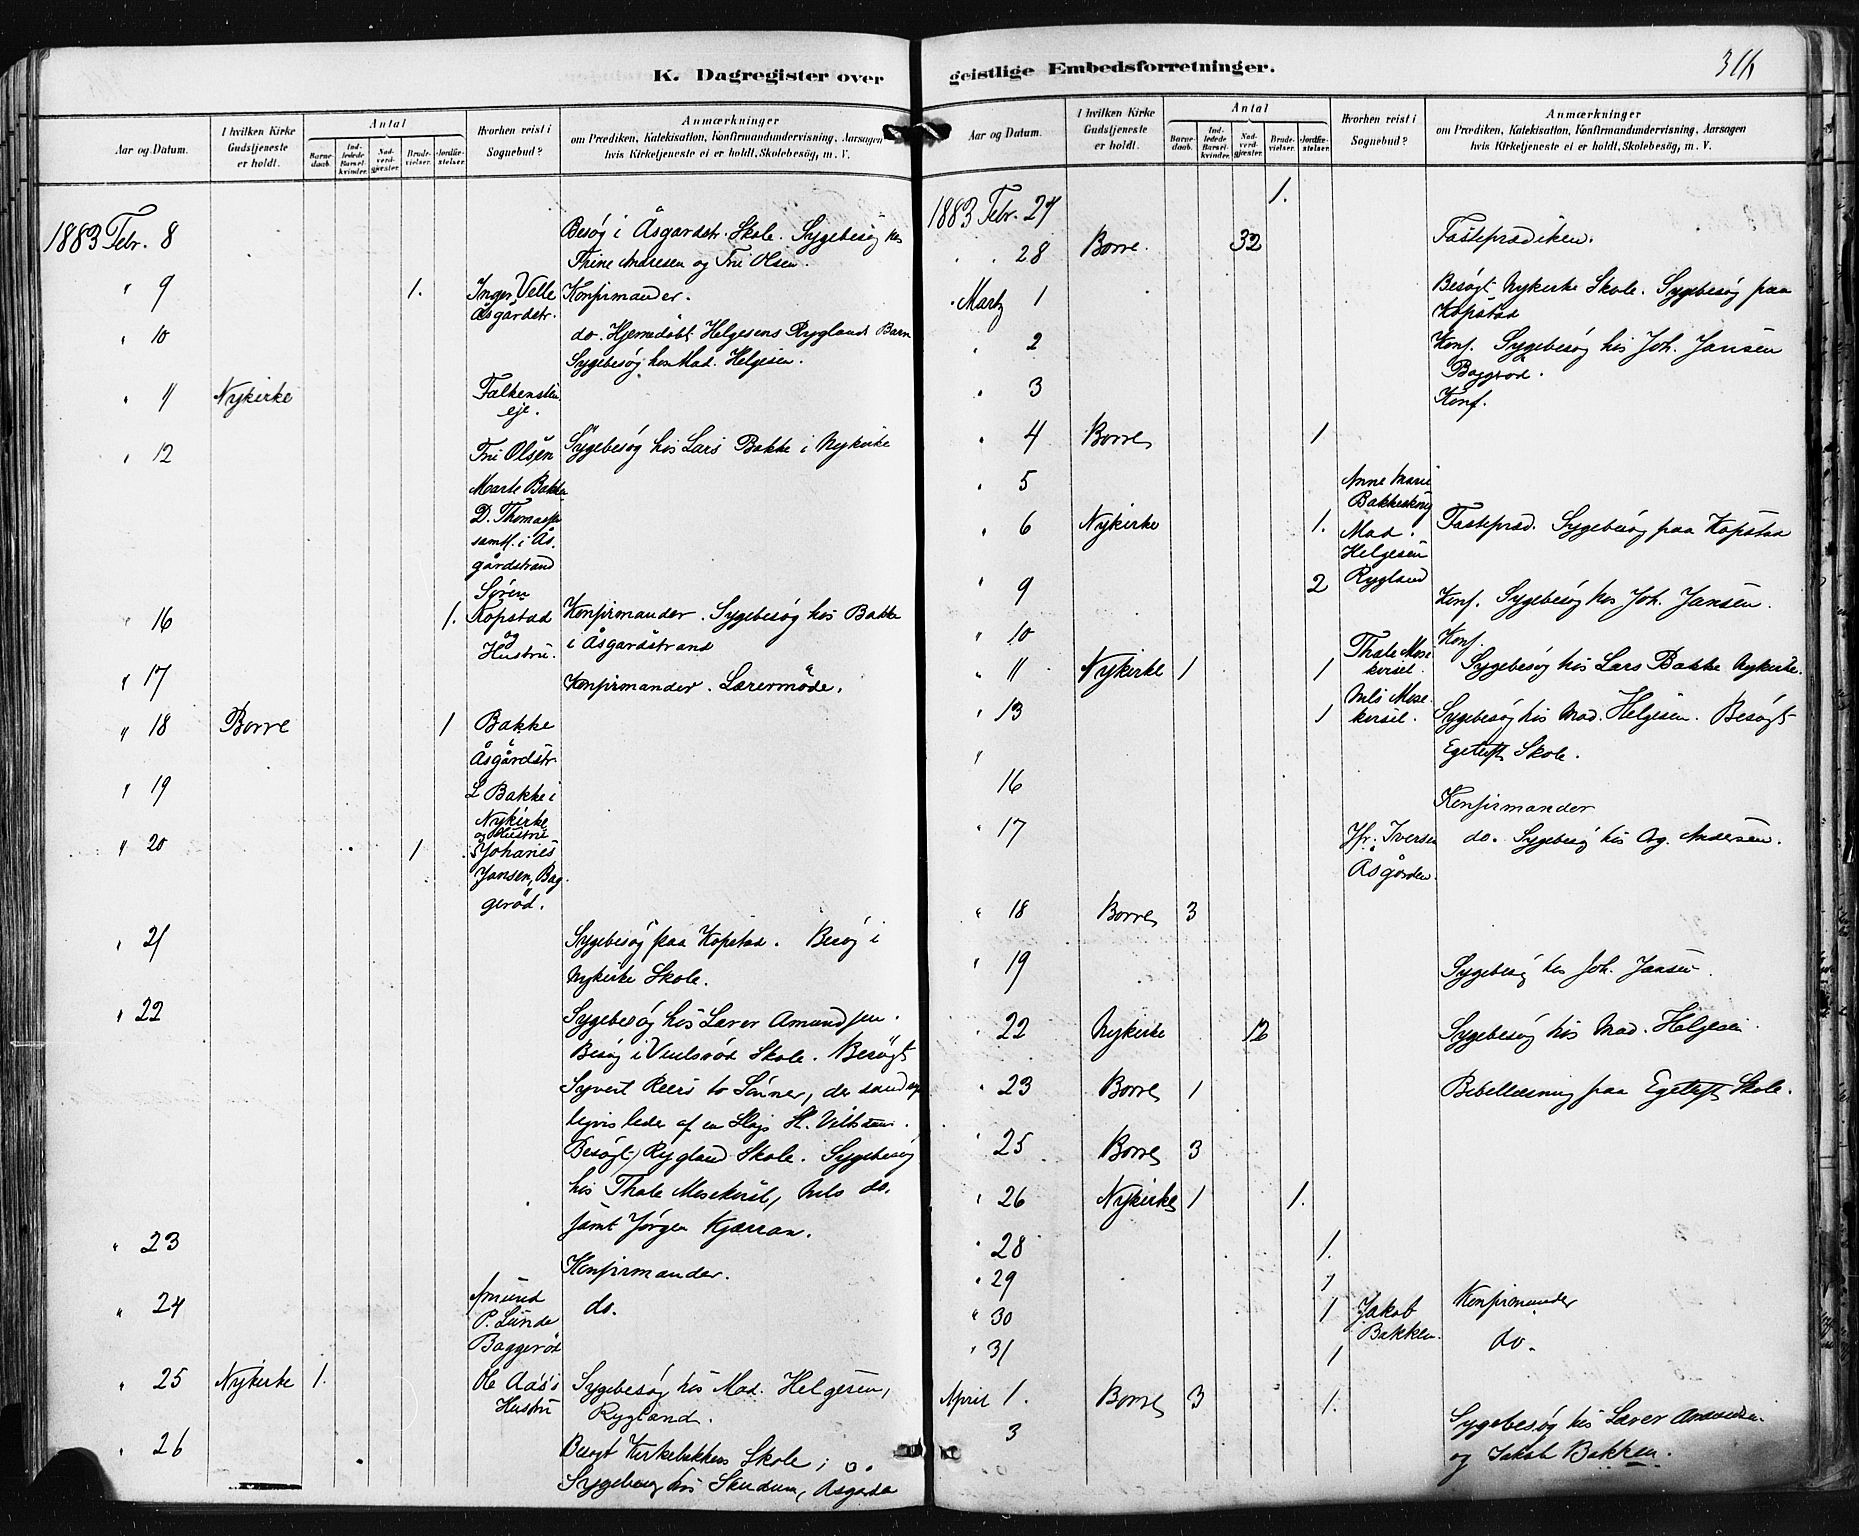 K. Dagregister over
Aar og Datum.
I hvilken Kirke Gudstjeneste er holdt.
Antal
Barnedaab.
Indledede Barselkvinder.
Nadverdgjæster.
Brudevielser.
Jordfæstelser.
Hvorhen reist i Sognebud?
Anmærkninger
om Prædiken, Katekisation, Konfirmandundervisning, Aarsagen
hvis Kirketjeneste ei er holdt, Skolebesøg, m. V.
1883 Febr. 8 Besøg i Åsgardstr. Skole. Sygebesøg hos
Trine Andresen og Tri Olsen.
" 9 1. Inger Velle Konfirmander.
Åsgårdstr.
" 10 do. Hjemedöbt Helgesens Rygland Barn
Sygebesøg hos Mad. Helgesen.
" 11 Nykirke Falkensten
eje.
" 12 Tri Olsen Sygebesøg hos Lars Bakke i Nykirke
Marte Bakke
D. Thomasen
samtl. i Ås-
gårdstrand
Søren
" 16 1. Kopstad Konfirmander. Sygebesøg hos Bakke
og Hustru. i Åsgardstrand
" 17 Konfirmander. Lærermöde.
" 18 Borre 1 Bakke
i Åsgårdstr.
" 19 L Bakke i
Nykirke
og Hustru
" 20 1 Johanes
Jansen, Bag-
geröd.
" 21 Sygebesøg paa Kopstad. Besøg i
Nykirke Skole.
" 22 Sygebesøg hos Lærer Amundsen.
Besøg i Skole. Besøgt
Syvert Reers to Sönner, der
ligvis leder af en Slags St. Veitsdans.
Besøgt Rygland Skole. Sygebesøg
hos Thale Mosekersil, Nils do.
samt Jørgen Kjærran.
" 23 Konfirmander.
" 24 Amund do.
P. Lunde
Baggeröd
" 25 Nykirke 1. Ole Aas's Sygebesøg hos Mad. Helgesen,
Hustru Rygland.
" 26 Besøgt Kirkebakkens Skole i
Sygebesøg hos Skudum, Åsgarden
316
geistlige Embedsforretninger.
Aar og Datum.
I hvilken Kirke Gudstjeneste er holdt.
Antal
Barnedaab.
Indledede Barselkvinder.
Nadverdgjæster.
Brudevielser.
Jordfæstelser.
Hvorhen reist i Sognebud?
Anmærkninger
om Prædiken, Katekisation, Konfirmandundervisning, Aarsagen
hvis Kirketjeneste ei er holdt, Skolebesøg, m. V.
1883 Febr. 27 1.
" 28 Borre. 32 Fasteprædiken.
" Marts 1 Besøgt Nykirke Skole. Sygebesøg paa
Kopstad
" 2 Konf. Sygebesøg hos Joh. Jansen
Baggröd.
" 3 Konf.
" 4 Borre 1
" 5 Anne Marie
Bakkeskoug
" 6 Nykirke 1. Mad. Fastepræd. Sygebesøg paa Kopstad
Helgesen
Rygland
" 9 2 Konf. Sygebesøg hos Joh. Jansen.
" 10 Konf.
" 11 Nykirke 1 1 Thale Mose- Sygebesøg hos Lars Bakke Nykirke.
kersil.
" 13 1 Nils Mose- Sygebesøg hos Mad. Helgesen. Besøgt
kersil.
" Egetuft Skole.
16 Konfirmander
" 17 Hfr. Iversen do. Sygebesøg hos Aug. Andersen.
Åsgården.
" 18 Borre 3
" 19 Sygebesøg hos Joh. Jansen.
" 22 Nykirke 12 Sygebesøg hos Mad. Helgesen.
" 23 Borre 1 Bibellæsning paa Egetuft Skole.
" 25 Borre 3
" 26 Nykirke 1 1.
" 28 1.
" 29 1
" 30 1 Jakob Konfirmander
Bakken.
" 31 1 do.
April 1. Borre 3 1.
3 Sygebesøg hos Lærer Amundsen
og Jakob Bakken.